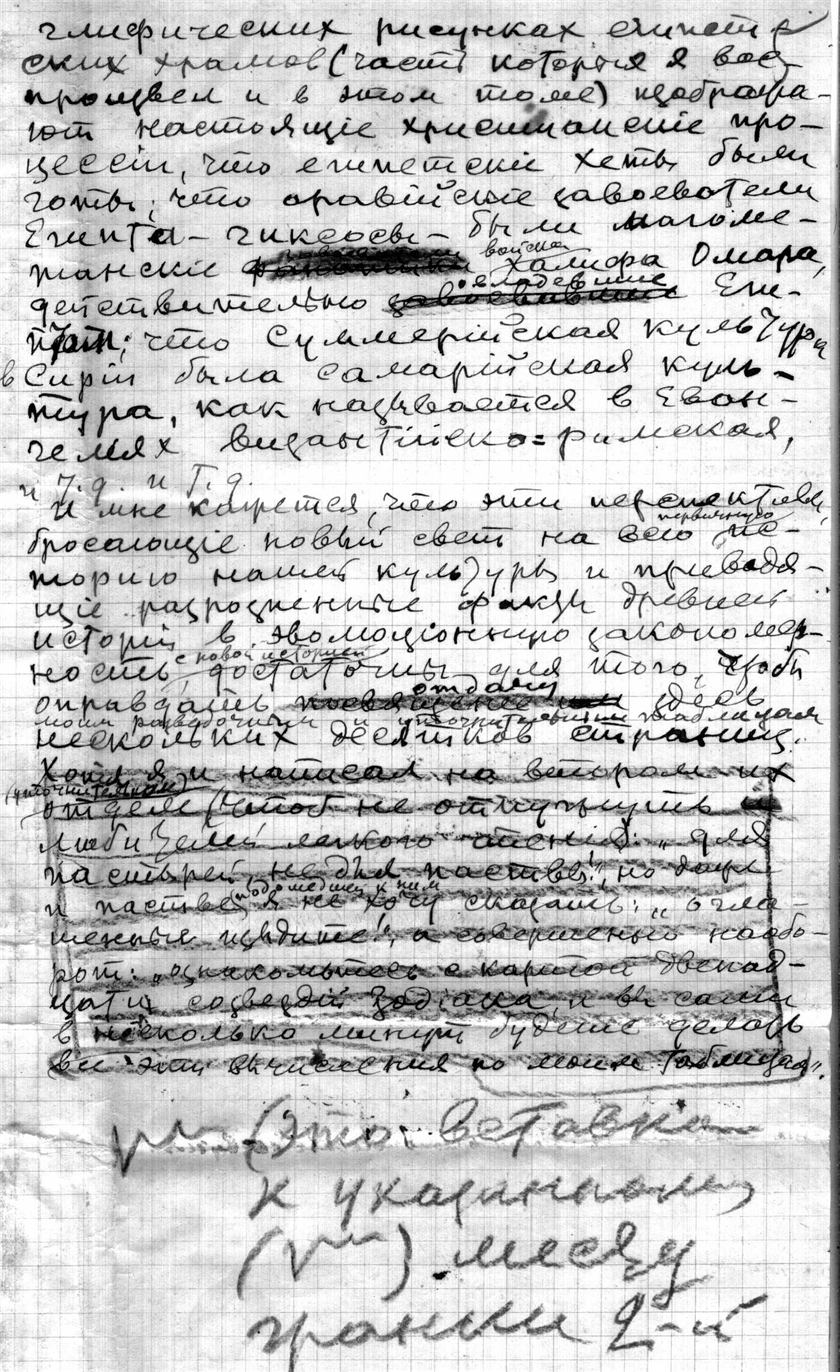 глифических рисунках египет-
ских храмов (часть которых я вос-
произвел и в этом томе) изобража-
ют настоящіе христианскіе про-
цессіи, что египетскіе хеты были
готы; что аравійскіе завоеватели
Египта - гиксосы - были магоме-
танскіе войска Халифа Омара,
действительно овладевшие Еги-
птом; что Суммерійская культура
в Сиріи была самарійская куль-
тура, как называется в Еван-
гелях византійско=римская,
и т.д. и т.д.
И мне кажется, что эти перспективы,
первичную
бросающіе новый свет на всю ис-
торию нашей культуры и приводя-
щіе разрозненные факты древней
исторіи в эволюціонную закономер-
с новой историей
ность, достаточны для того, чтоб
оправдать отдачу здесь
моим разведочным и уточнительным таблицам
нескольких десятков страниц.
Хотя я и написал на втором их
(уточнительном)
отделе (чтоб не отпугнуть
любителей легкого чтенія): „для
пастырей, не для паствы", но даже
подошедшей к ним
и пастве я не хочу сказать: „огла-
шенные изыдите!", а совершенно наобо-
рот: „ознакомьтесь с картой двенад-
цати созвездій Зодіака, и вы сами
в несколько минут будете делать
все эти вычисления по моим таблицам".
(Это вставка
к указанному
(V) месту
гранки 2-й